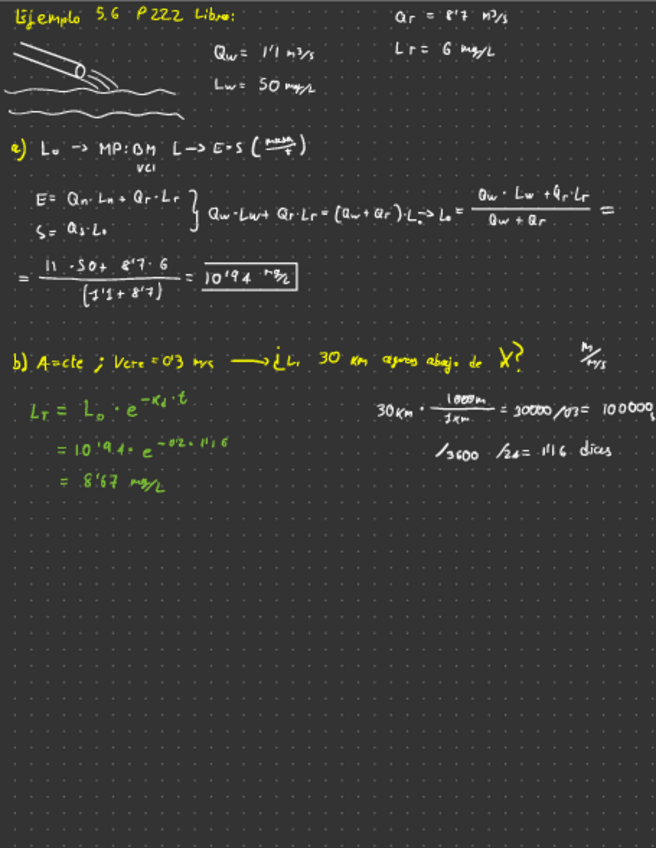 Ejemplo 5.6 P222 Libro:
Qr = 8'7 m³/s
Qw = 1'1 m³/s
Lr = 6 mg/L
Lw = 50 mg/L
a) L₀ → MP: BM L → E=S (masa/t)
VC1
E = Qn·Ln + Qr·Lr
S = Qs·L₀
} Qw·Lw + Qr·Lr = (Qw + Qr)·L₀ → L₀ = (Qw·Lw + Qr·Lr)/(Qw + Qr) =
= (11·50 + 8'7·6)/(1'1 + 8'7) = 10'94 mg/L
b) A=cte ; Vcte = 0'3 m/s → ¿L, 30 km aguas abajo de X?
M/m/s
Lт = L₀ · e^(-Kd·t)
= 10'94 · e^(-0'2·1'16)
= 8'67 mg/L
30Km · 1000m/1Km = 30000/03 = 100000
/3600 /24 = 1'16 dias